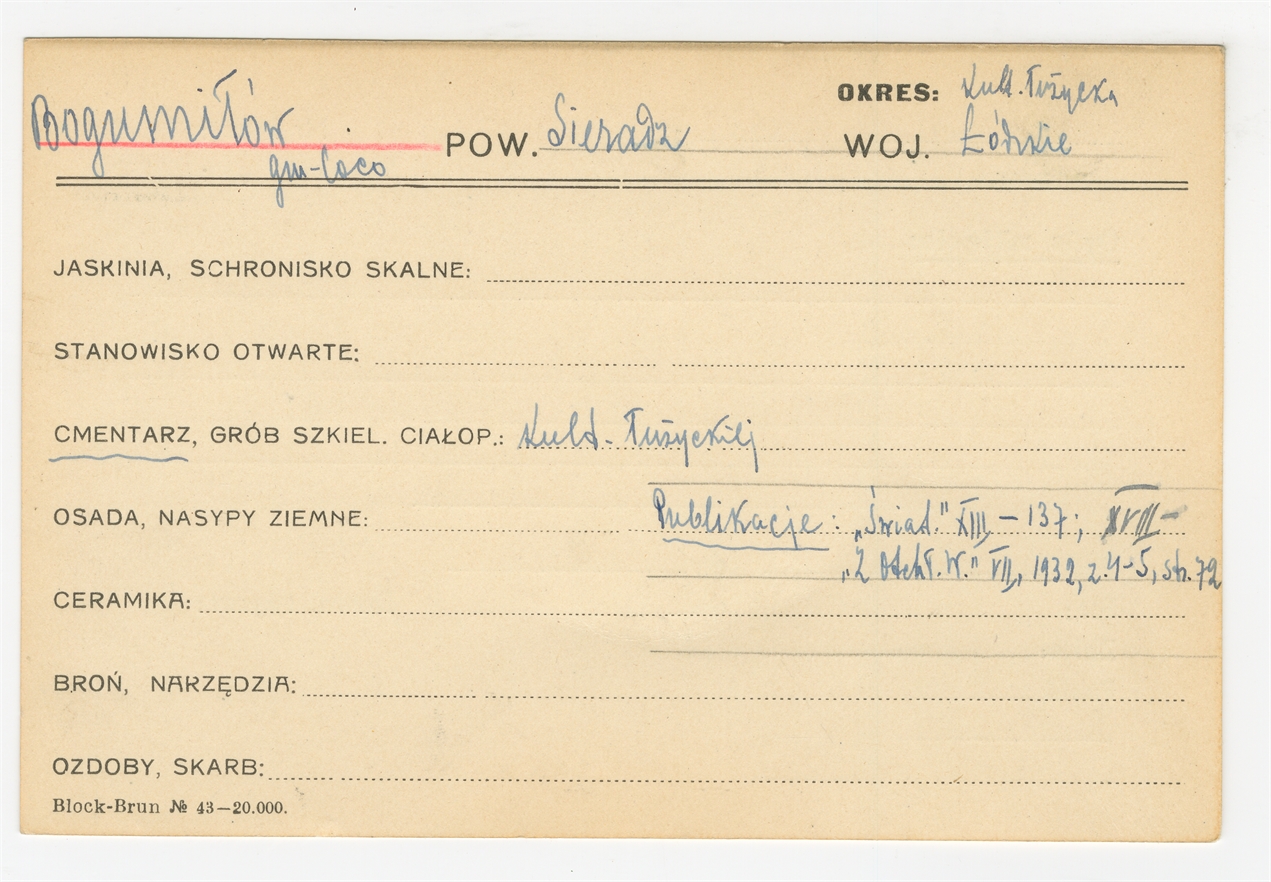 OKRES: Kult. Łużycka
Bogumiłów POW. Sieradz WOJ. Łódzkie
gm-loco
JASKINIA, SCHRONISKO SKALNE:
STANOWISKO OTWARTE:
CMENTARZ, GRÓB SZKIEL. CIAŁOP.: Kult. Łużyckiej
OSADA, NASYPY ZIEMNE: Publikacje: „Świat." XIII, – 137; XVII –
„Z Otchł. W." VII, 1932, z. 4-5, str. 72
CERAMIKA:
BROŃ, NARZĘDZIA:
OZDOBY, SKARB:
Block-Brun № 43—20.000.